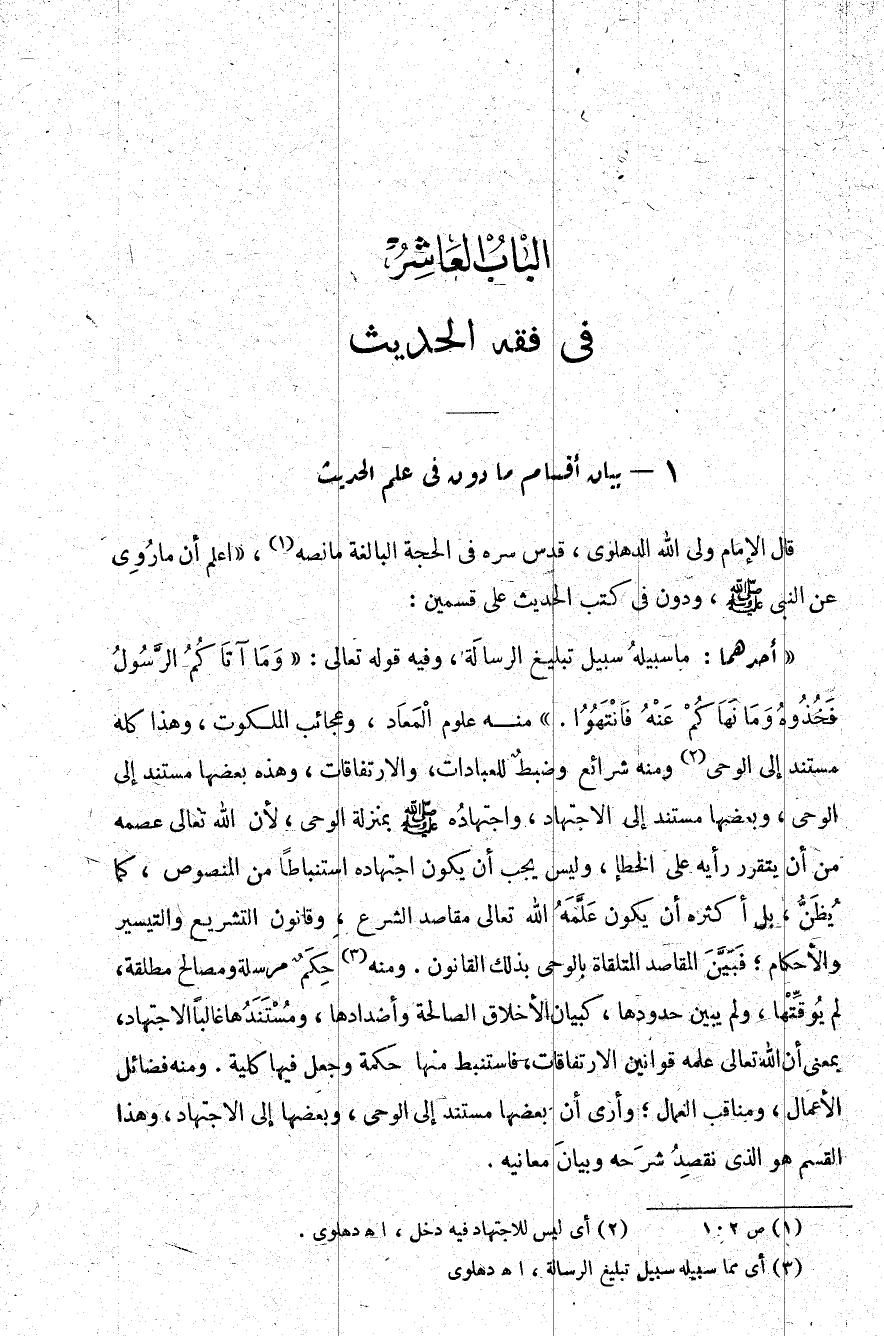 الْبَابُ الْعَاشِرُ
فى فقه الحديث
١ — بيان أقسام ما دون فى علم الحديث
قال الإمام ولى الله الدهلوى ، قدس سره فى الحجة البالغة مانصه(١) ، «اعلم أن مارُوِى
عن النبى ﷺ ، ودون فى كتب الحديث على قسمين :
« أحدهما : ماسبيلهُ سبيل تبليغ الرسالة ، وفيه قوله تعالى : « وَمَا آتَاكُمُ الرَّسُولُ
فَخُذُوهُ وَمَا نَهَاكُمْ عَنْهُ فَانْتَهُوا . » منه علوم الْمَعَاد ، وعجائب الملكوت ، وهذا كله
مستند إلى الوحى(٢) ومنه شرائع وضبطٌ للعبادات، والارتفاقات ، وهذه بعضها مستند إلى
الوحى ، وبعضها مستند إلى الاجتهاد ، واجتهادُه ﷺ بمنزلة الوحى ، لأن الله تعالى عصمه
من أن يتقرر رأيه على الخطإ ، وليس يجب أن يكون اجتهاده استنباطًا من المنصوص ، كما
يُظَنُّ ، بل أكثره أن يكون عَلَّمَهُ الله تعالى مقاصد الشرع ، وقانون التشريع والتيسير
والأحكام ؛ فَبَيَّنَ المقاصد المتلقاة بالوحى بذلك القانون . ومنه(٣) حِكَمٌ مرسلة ومصالح مطلقة،
لم يُوقِّتْها ، ولم يبين حدودها ، كبيان الأخلاق الصالحة وأضدادها ، ومُسْتَنَدُها غالباً الاجتهاد،
بمعنى أن الله تعالى علمه قوانين الارتفاقات، فاستنبط منها حكمة وجعل فيها كلية . ومنه فضائل
الأعمال ، ومناقب العمال ؛ وأرى أن بعضها مستند إلى الوحى ، وبعضها إلى الاجتهاد ، وهذا
القسم هو الذى نقصدُ شرَحه وبيانَ معانيه .
(١) ص ١٠٢ (٢) أى ليس للاجتهاد فيه دخل ، اه دهلوى .
(٣) أى مما سبيله سبيل تبليغ الرسالة ، اه دهلوى